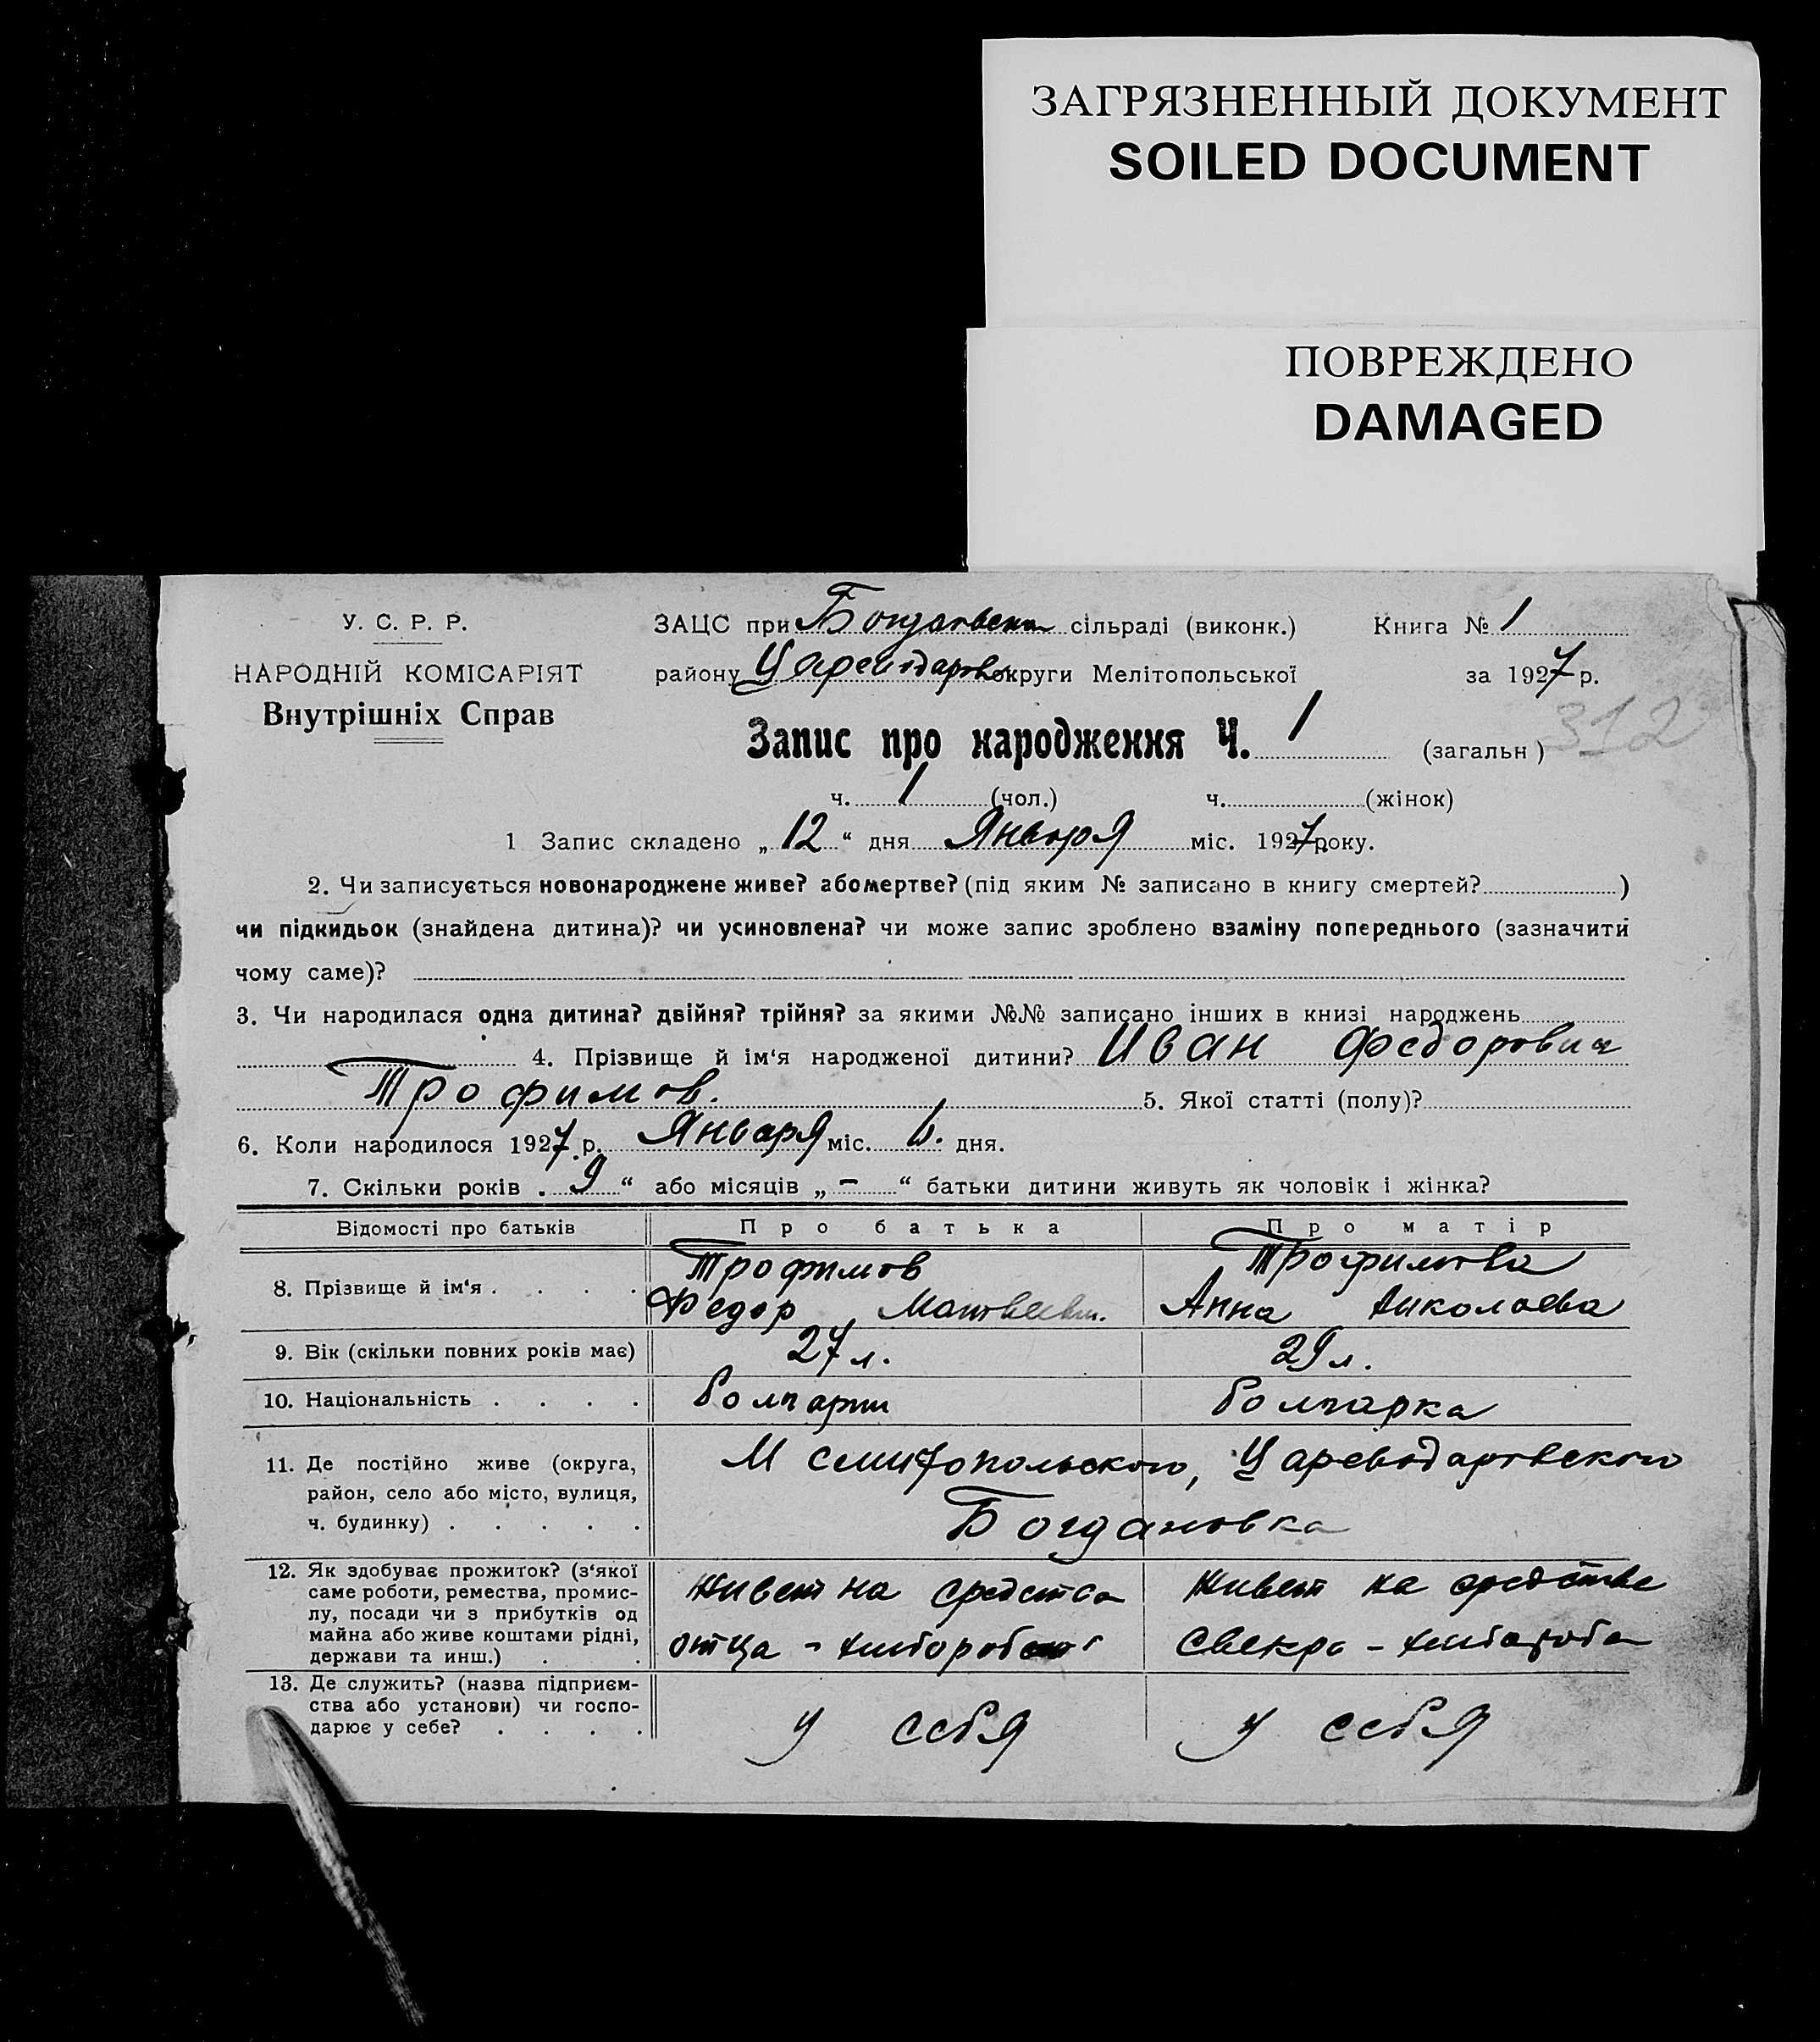 ЗАГРЯЗНЕННЫЙ ДОКУМЕНТ
SOILED DOCUMENT
ПОВРЕЖДЕНО
DAMAGED
У. С. Р. Р.
НАРОДНІЙ КОМІСАРІЯТ
Внутрішніх Справ
ЗАЦС при сільраді (виконк.) Книга № 1
району округи Мелітопольської за 1927 р.
312
Запис про народження Ч. 1 (загальн )
ч. 1 (чол.) ч. (жінок)
1 Запис складено „ 12 “ дня Января міс. 1927 року.
2. Чи записується новонароджене живе? або мертве? (під яким № записано в книгу смертей? )
чи підкидьок (знайдена дитина)? чи усиновлена? чи може запис зроблено взаміну попереднього (зазначити
чому саме)?
3. Чи народилася одна дитина? двійня? трійня? за якими №№ записано інших в книзі народжень
4. Прізвище й ім‘я народженої дитини? Иван Федорович
Трофимов. 5. Якої статті (полу)?
6. Коли народилося 1927 р. Января міс. 6. дня.
7. Скільки років „ 9 “ або місяців „ – “ батьки дитини живуть як чоловік і жінка?
Відомості про батьків Про батька Про матір
8. Прізвище й ім‘я . . . . Трофимов Трофимова
Федор Матвеевич. Анна Николаева
9. Вік (скільки повних років має) 27 л. 29 л.
10. Національність . . . . болгарин болгарка
11. Де постійно живе (округа,
район, село або місто, вулиця,
ч. будинку) . . . . .
Мелитопольского, Цареводаровского
Богдановка
12. Як здобуває прожиток? (з‘якої
саме роботи, ремества, промис-
лу, посади чи з прибутків од
майна або живе коштами рідні,
держави та инш.) . .
живет на средства живет на средства
отца - свекра -
13. Де служить? (назва підприєм-
ства або установи) чи госпо-
дарює у себе? . . . .
у себя у себя